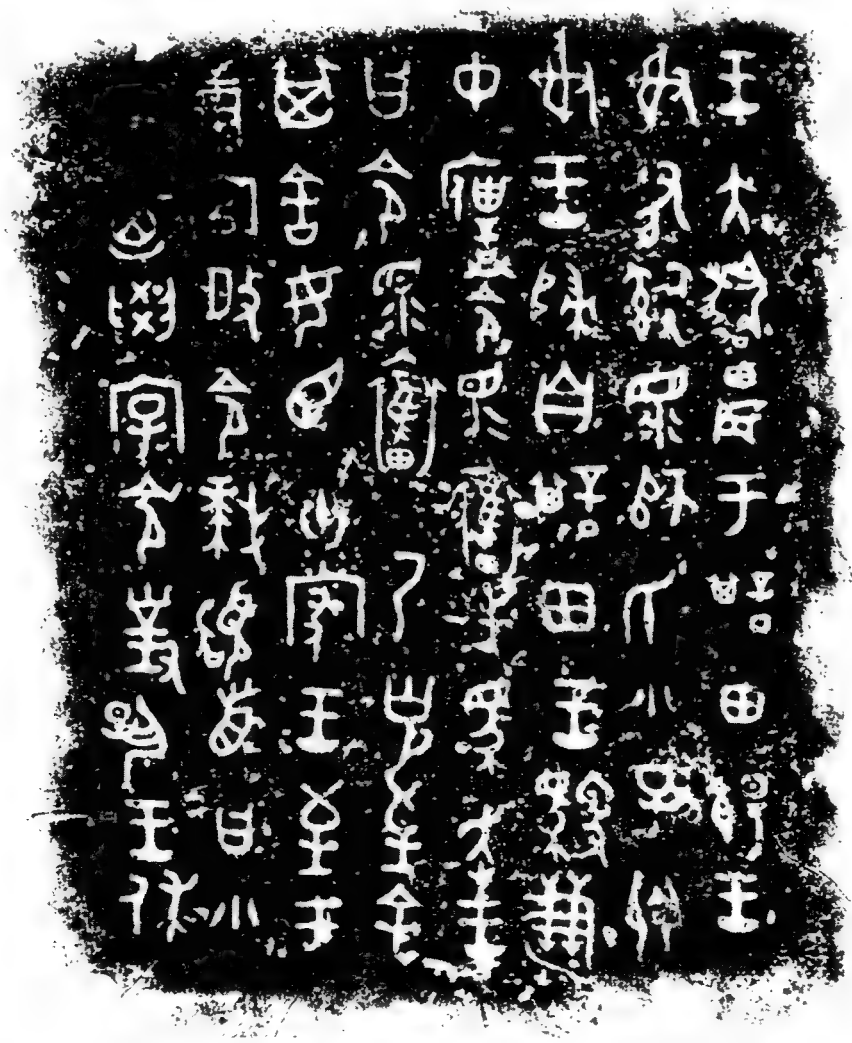 王大耤農于諆田餳王
射有𤔲眔師氏小子卿
射王歸自諆田王馭溓
中僕令眔奮先馬走王
曰令眔奮乃克至余
其舍女臣十家王至于
溓宮𢼄令拜䭫首曰小
子迺學令對揚王休